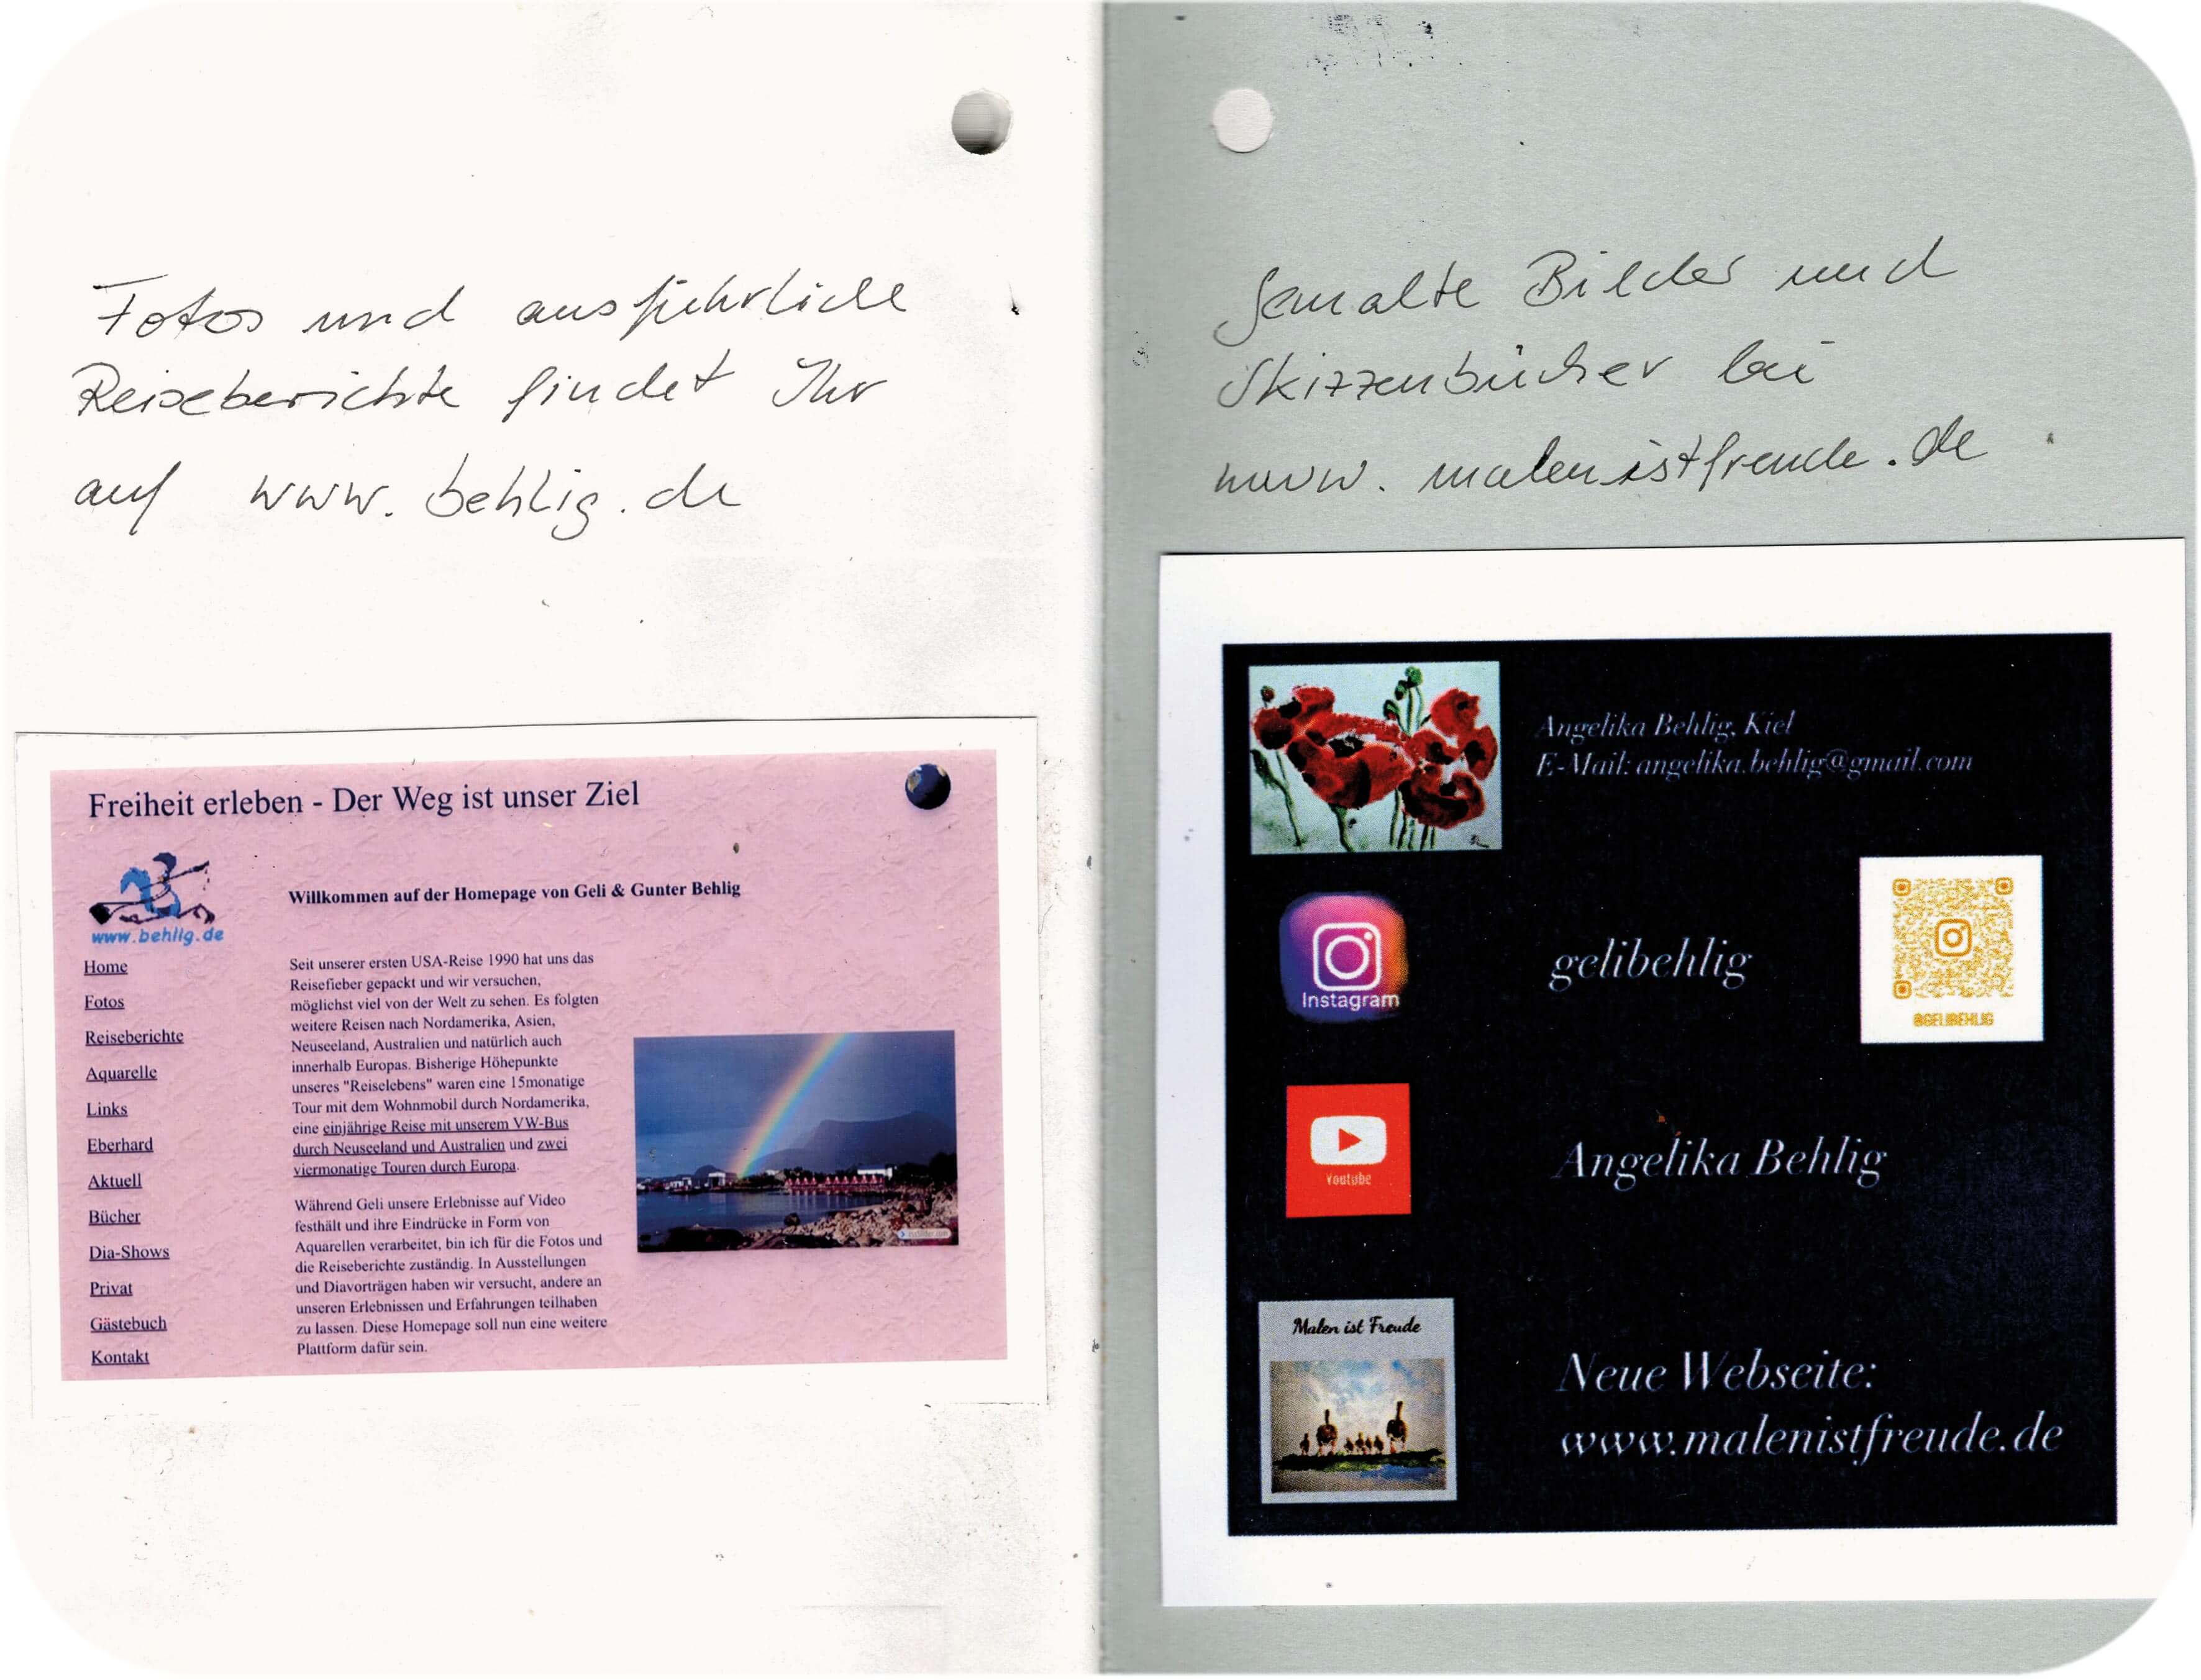 Fotos und ausführliche
Reiseberichte findet Ihr
auf www.behlig.de
Freiheit erleben - Der Weg ist unser Ziel
www.behlig.de
Willkommen auf der Homepage von Geli & Gunter Behlig
Home
Fotos
Reiseberichte
Aquarelle
Links
Eberhard
Aktuell
Bücher
Dia-Shows
Privat
Gästebuch
Kontakt
Seit unserer ersten USA-Reise 1990 hat uns das
Reisefieber gepackt und wir versuchen,
möglichst viel von der Welt zu sehen. Es folgten
weitere Reisen nach Nordamerika, Asien,
Neuseeland, Australien und natürlich auch
innerhalb Europas. Bisherige Höhepunkte
unseres "Reiselebens" waren eine 15monatige
Tour mit dem Wohnmobil durch Nordamerika,
eine einjährige Reise mit unserem VW-Bus
durch Neuseeland und Australien und zwei
viermonatige Touren durch Europa.
Während Geli unsere Erlebnisse auf Video
festhält und ihre Eindrücke in Form von
Aquarellen verarbeitet, bin ich für die Fotos und
die Reiseberichte zuständig. In Ausstellungen
und Diavorträgen haben wir versucht, andere an
unseren Erlebnissen und Erfahrungen teilhaben
zu lassen. Diese Homepage soll nun eine weitere
Plattform dafür sein.
Gemalte Bilder und
Skizzenbücher bei
www.malenistfreude.de
Angelika Behlig, Kiel
E-Mail: angelika.behlig@gmail.com
Instagram
gelibehlig
@GELIBEHLIG
Youtube
Angelika Behlig
Malen ist Freude
Neue Webseite:
www.malenistfreude.de